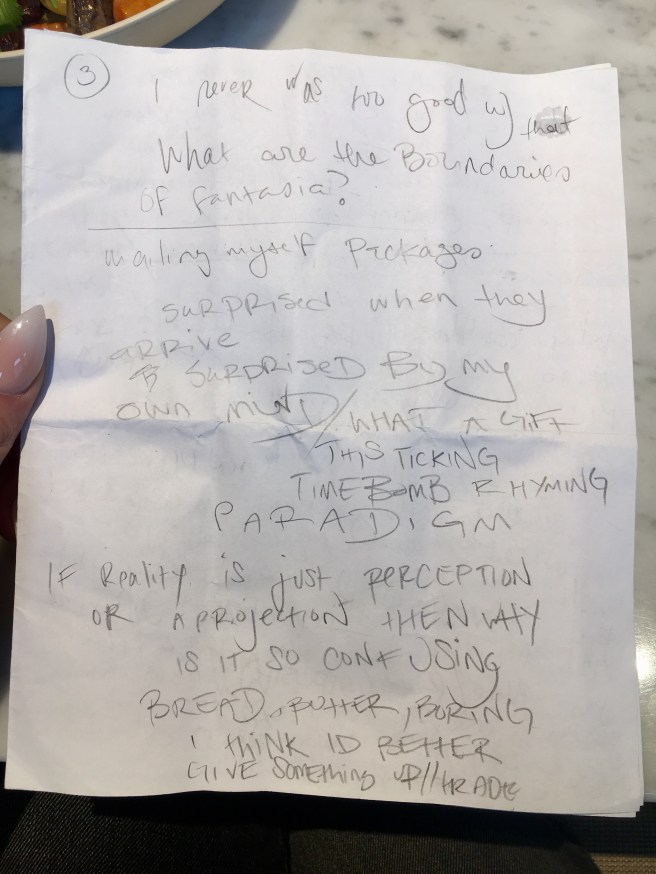 3
I never was too good w/ that
What are the Boundaries
of fantasia?
mailing myself Packages
SURPRised when they
ARRive
SURPRiSeD By my
OWN MIND/WHAT A GIFT
THIS TICKING
TIMEBOMB RHYMING
PARADIGM
IF Reality is just PERCEPTION
OR A PROJECTION tHEN WHY
IS IT SO CONFUSING
BREAD, BUTTER, BORING
I tHiNK ID BETTER
GIVE SOMEthing UP//tRADE